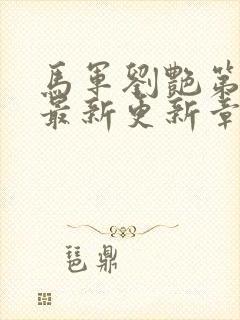 馬軍劉艷第
最新更新章
琶鼎